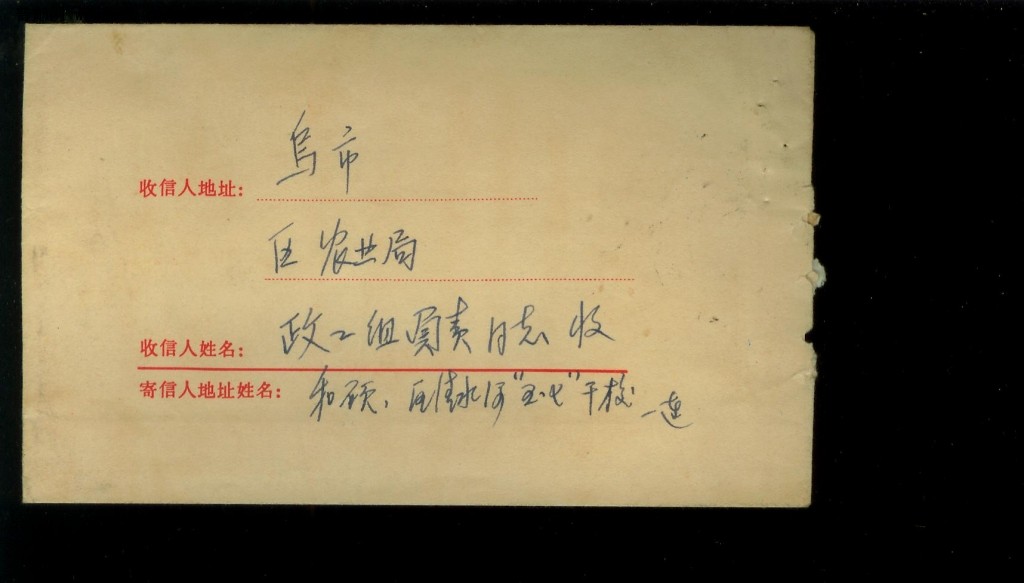 收信人地址: 乌市
区农业局
收信人姓名: 政工组负责同志收
寄信人地址姓名: 和硕、区清水河"五·七"干校一连